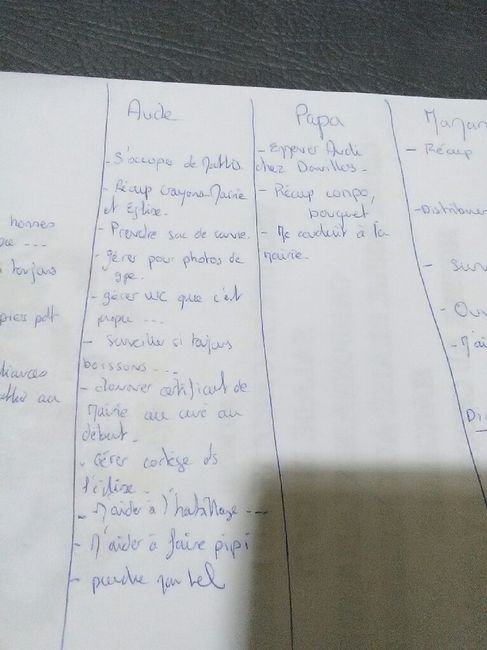 honnes
toujours
pdf
au
Aude
- S'occuper de Mathis
- Récup crayons Mairie
et Eglise.
- Prendre sac de
- gérer pour photos de
gpe.
- gérer WC que c'est
propre ...
- Surveiller si toujours
boissons ...
- donner certificat de
Mairie au curé au
début.
- Gérer cortège ds
l'église.
- M'aider à l'habillage ---
- M'aider à faire pipi
- prendre mon tel
Papa
- Emmener Aude
chez
- Récup compo,
bouquet
- Me conduit à la
Mairie.
Maman
- Récup
- Distribuer
- Surv
- Ouv
- M'ai
Di